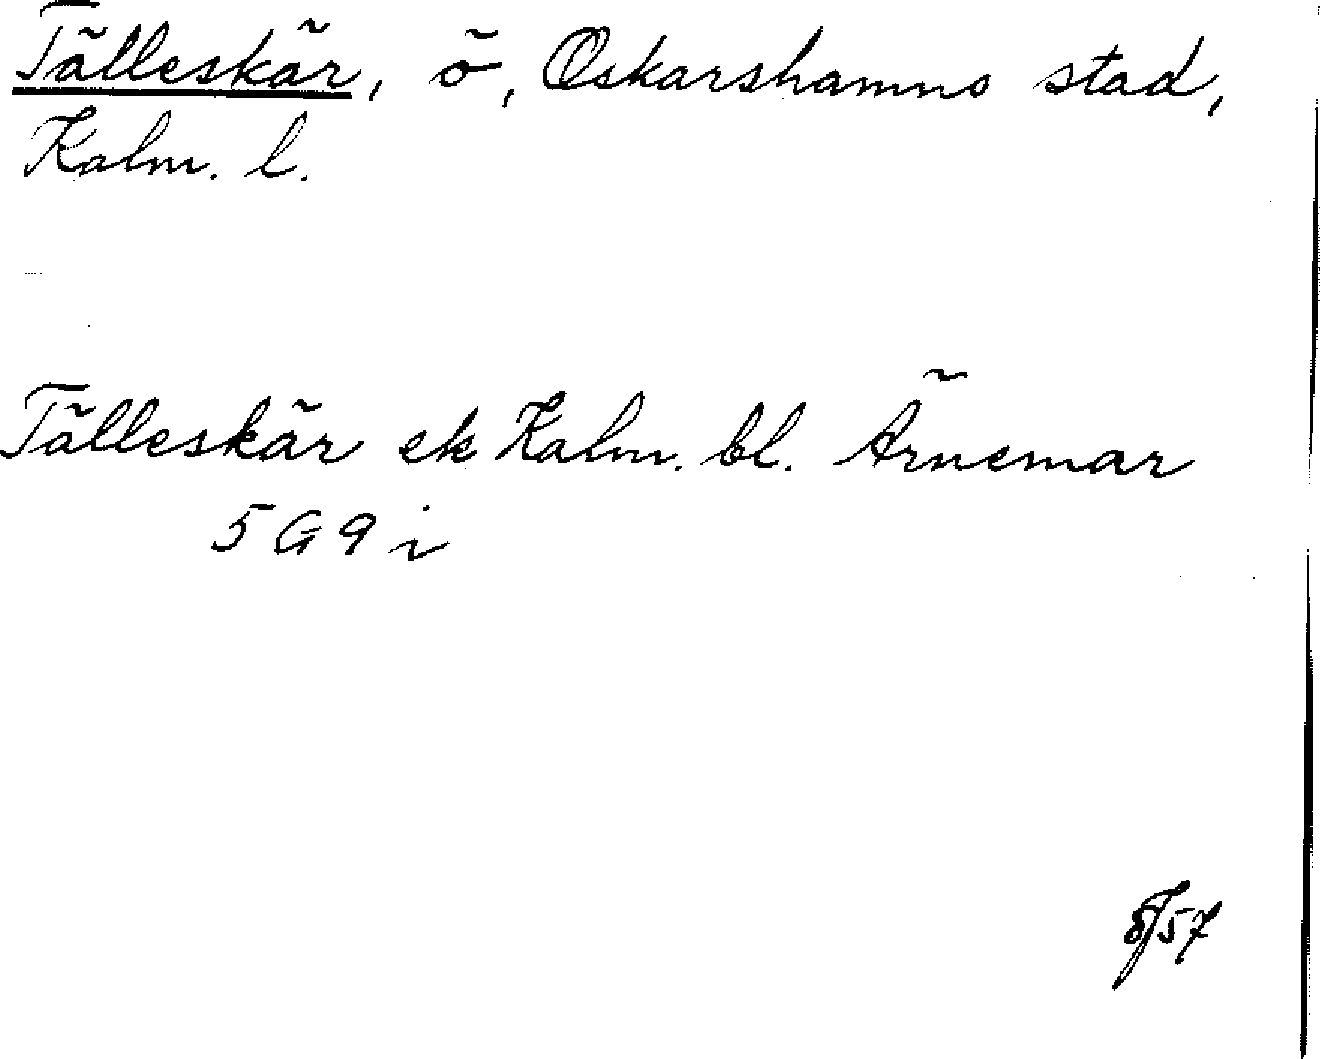 Tälleskär, ö, Oskarshamns stad,
Kalm. l.
Tälleskär ek Kalm. bl. Ärnemar
5G9i